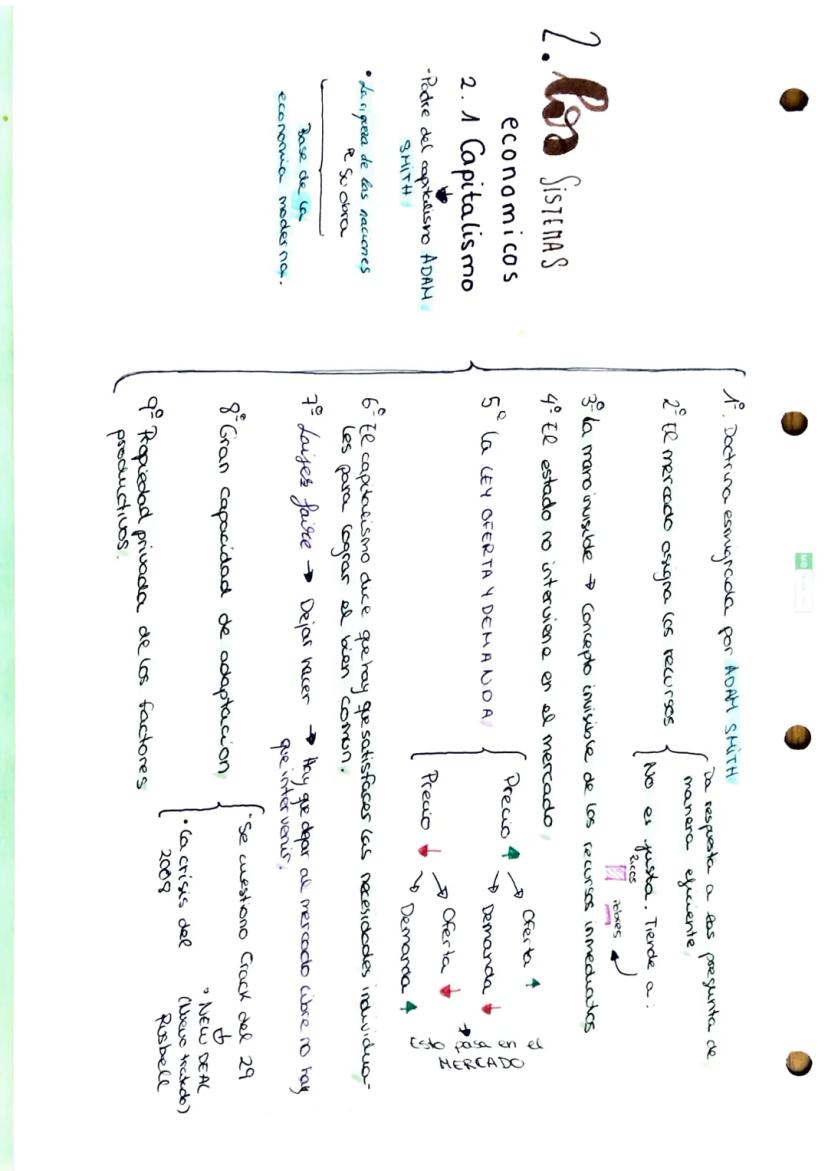 2. Los SISTEMAS
economicos
2. 1 Capitalismo
- Padre del capitalismo ADAM
SMITH
• La riqueza de las naciones
su obra
Base de la
economia moderna.
1º. Doctrina enmigrada por ADAM SMITH
2º El mercado asigna los recursos
Da respuesta a las pregunta de
manera eficiente
No es justa. Tiende a:
ricos pobres
3º La mano invisible → Concepto invisible de los recursos inmediatos
4º El estado no interviene en el mercado
5º La LEY OFERTA Y DEMANDA
Precio ↑ → Oferta ↑
→ Demanda ↓
Precio ↓ → Oferta ↓
→ Demanda ↑
Esto pasa en el
MERCADO
6º El capitalismo dice que hay que satisfacer las necesidades individua-
les para lograr el bien comun.
7º Laijes faire → Dejar hacer → Hay que dejar al mercado libre no hay
que intervenir.
8º Gran capacidad de adaptacion
• Se cuestiono Crack del 29
• NEW DEAL
(Nuevo tratado)
• La crisis del
2008
9º Propiedad privada de los factores
productivos.